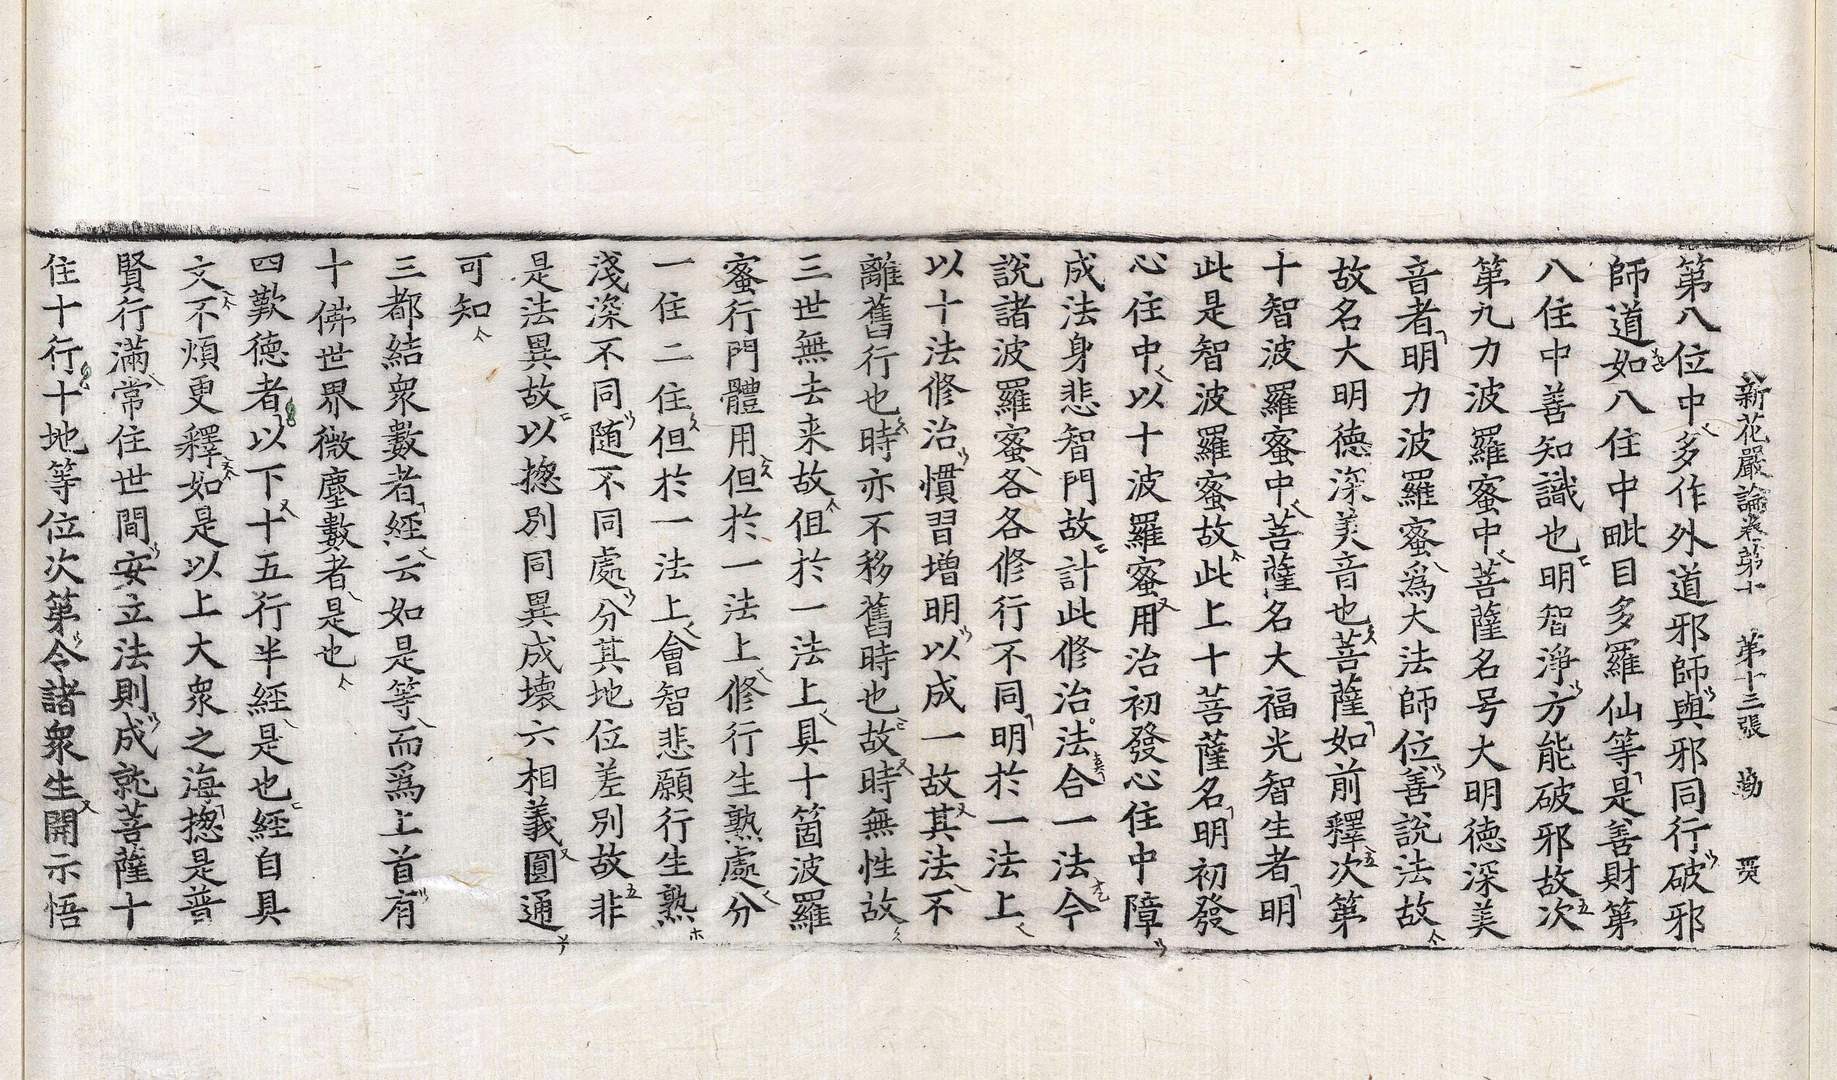 新花嚴論卷第十　第十三張　勘　㒹
第八位中多作外道邪師與邪同行破邪
師道如八住中毗目多羅仙等是善財第
八住中善知識也明智淨方能破邪故次
第九力波羅蜜中菩薩名号大明德深美
音者明力波羅蜜爲大法師位善說法故
故名大明德深美音也菩薩如前釋次第
十智波羅蜜中菩薩名大福光智生者明
此是智波羅蜜故此上十菩薩名明初發
心住中以十波羅蜜用治初發心住中障
成法身悲智門故計此修治法合一法今
說諸波羅蜜各各修行不同明於一法上
以十法修治慣習增明以成一故其法不
離舊行也時亦不移舊時也故時無性故
三世無去来故但於一法上具十箇波羅
蜜行門體用但於一法上修行生熟處分
一住二住但於一法上會智悲願行生熟
淺深不同随不同處分其地位差別故非
是法異故以揔別同異成壞六相義圓通
可知
三都結衆數者經云如是等而爲上首有
十佛世界微塵數者是也
四歎德者以下十五行半經是也經自具
文不煩更釋如是以上大衆之海揔是普
賢行滿常住世間安立法則成就菩薩十
住十行十地等位次第令諸衆生開示悟